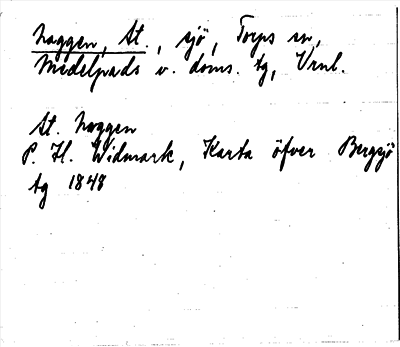 Naggen, St., sjö, Torps sn,
Medelpads v. doms. tg, Vrnl.
St. Naggen
P. H. Widmark, Karta öfver Bergsjö
tg 1848